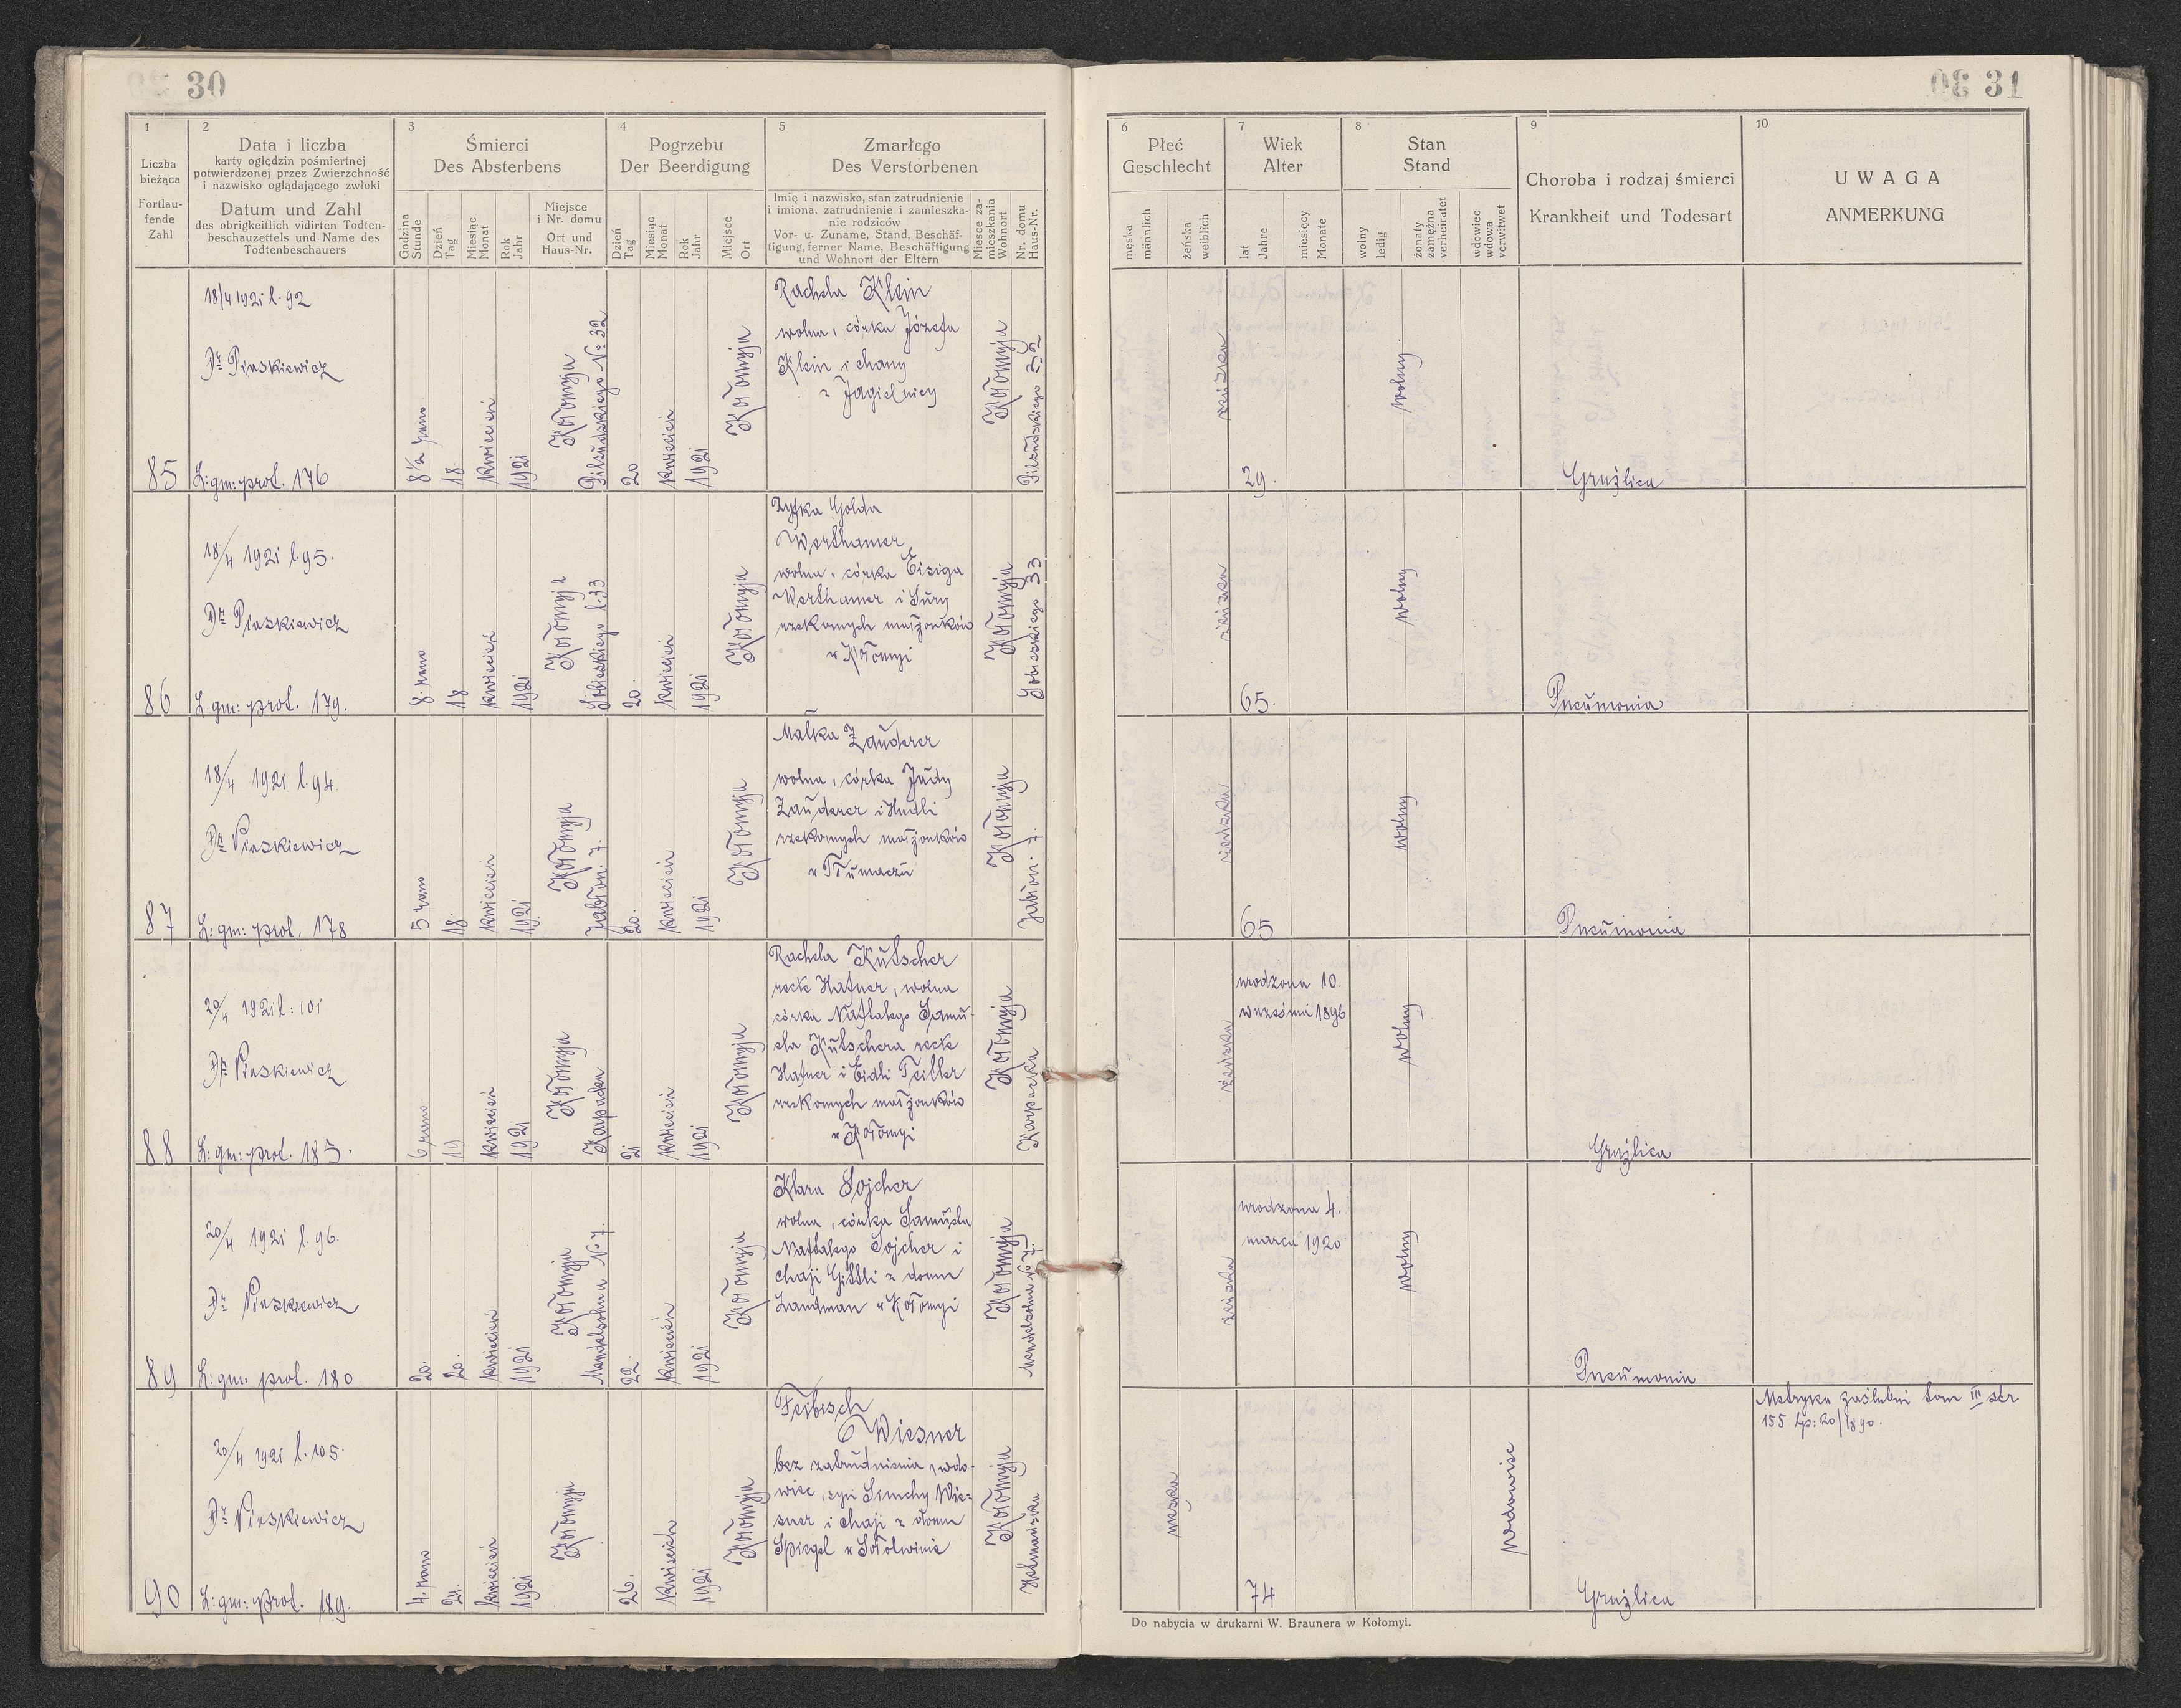 30
1
Liczba
bieżąca
Fortlau-
fende
Zahl
2
Data i liczba
karty oględzin pośmiertnej
potwierdzonej przez Zwierzchność
i nazwisko oglądającego zwłoki
Datum und Zahl
des obrigkeitlich vidirten Todten-
beschauzettels und Name des
Todtenbeschauers
3
Śmierci
Des Absterbens
Godzina
Stunde
Dzień
Tag
Miesiąc
Monat
Rok
Jahr
Miejsce
i Nr. domu
Ort und
Haus-Nr.
4
Pogrzebu
Der Beerdigung
Dzień
Tag
Miesiąc
Monat
Rok
Jahr
Miejsce
Ort
5
Zmarłego
Des Verstorbenen
Imię i nazwisko, stan zatrudnienie
i imiona, zatrudnienie i zamieszka-
nie rodziców
Vor- u. Zuname, Stand, Beschäf-
tigung, ferner Name, Beschäftigung
und Wohnort der Eltern
Miesce za-
mieszkania
Wohnort
Nr. domu
Haus-Nr.
85
18/4 1921 l. 92
Dr Piaskiewicz
L: gm: prot. 176
8 1/2 rano
18.
kwiecień
1921
Kołomyja
Piłsudskiego No 32
20
kwiecień
1921
Kołomyja
Rachela Klein
wolna, córka Józefa
Klein i Chany
z Jagielnicy
Kołomyja
Piłsudskiego 32
86
18/4 1921 l. 95.
Dr Piaskiewicz
L. gm: prot. 179.
8. rano
18
kwiecień
1921
Kołomyja
Sobieskiego l. 33
20.
kwiecień
1921
Kołomyja
Ryfka Golda
Werthamer
wolna, córka Eisiga
Werthamer i Sury
rzekomych małżonków
w Kołomyi
Kołomyja
Sobieskiego 33
87
18/4 1921 l. 94.
Dr Piaskiewicz
L: gm: prot. 178
5 rano
18.
kwiecień
1921
Kołomyja
Jabłon. 7.
20.
kwiecień
1921
Kołomyja
Malka Zauderer
wolna, córka Judy
Zauderer i Hudli
rzekomych małżonków
w Tłumaczu
Kołomyja
Jabłon. 7.
88
20/4 1921 l: 101
Dr Piaskiewicz
L: gm: prot. 185.
6 rano
19
kwiecień
1921
Kołomyja
Karpacka
21
kwiecień
1921
Kołomyja
Rachela Kutscher
recte Hafner, wolna
córka Naftalego Samu-
ela Kutschera recte
Hafner i Eidli Teitler
rzekomych małżonków
w Kołomyi
Kołomyja
Karpacka
89
20/4 1921 l. 96.
Dr Piaskiewicz
L: gm: prot. 180
20.
20.
kwiecień
1921
Kołomyja
Mendelsohna No 7.
22.
kwiecień
1921
Kołomyja
Klara Sojcher
wolna, córka Samuela
Naftalego Sojcher i
Chaji Gittli z domu
Landman w Kołomyi
Kołomyja
Mendelsohna No 7.
90
20/4 1921 l. 105.
Dr Piaskiewicz
L: gm: prot. 189.
4. rano
24
kwiecień
1921
Kołomyja
26.
kwiecień
1921
Kołomyja
Feibisch
Wiesner
bez zatrudnienia, wdo-
wiec, syn Simchy Wie-
sner i Chaji z domu
Spiegel w Sołotwinie
Kołomyja
Hetmańska
31
6
Płeć
Geschlecht
męska
männlich
żeńska
weiblich
7
Wiek
Alter
lat
Jahre
miesięcy
Monate
8
Stan
Stand
wolny
ledig
żonaty
zamężna
verheiratet
wdowiec
wdowa
verwitwet
9
Choroba i rodzaj śmierci
Krankheit und Todesart
10
UWAGA
ANMERKUNG
żeńska
29.
wolny
Gruźlica
żeńska
65.
wolny
Pneumonia
żeńska
65
wolny
Pneumonia
żeńska
urodzona 10.
września 1896
wolny
Gruźlica
żeńska
urodzona 4.
marca 1920
wolny
Pneumonia
męska
74
wdowiec
Gruźlica
Metryka zaślubin tom III str
155 lp: 20/1890.
Do nabycia w drukarni W. Braunera w Kołomyi.